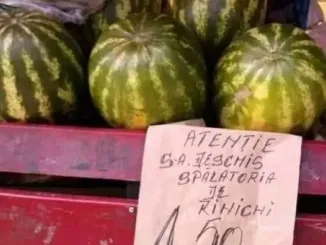 ATENȚIE
S.A. DESCHIS
SPĂLATORIA
DE
KINICHI
1,50